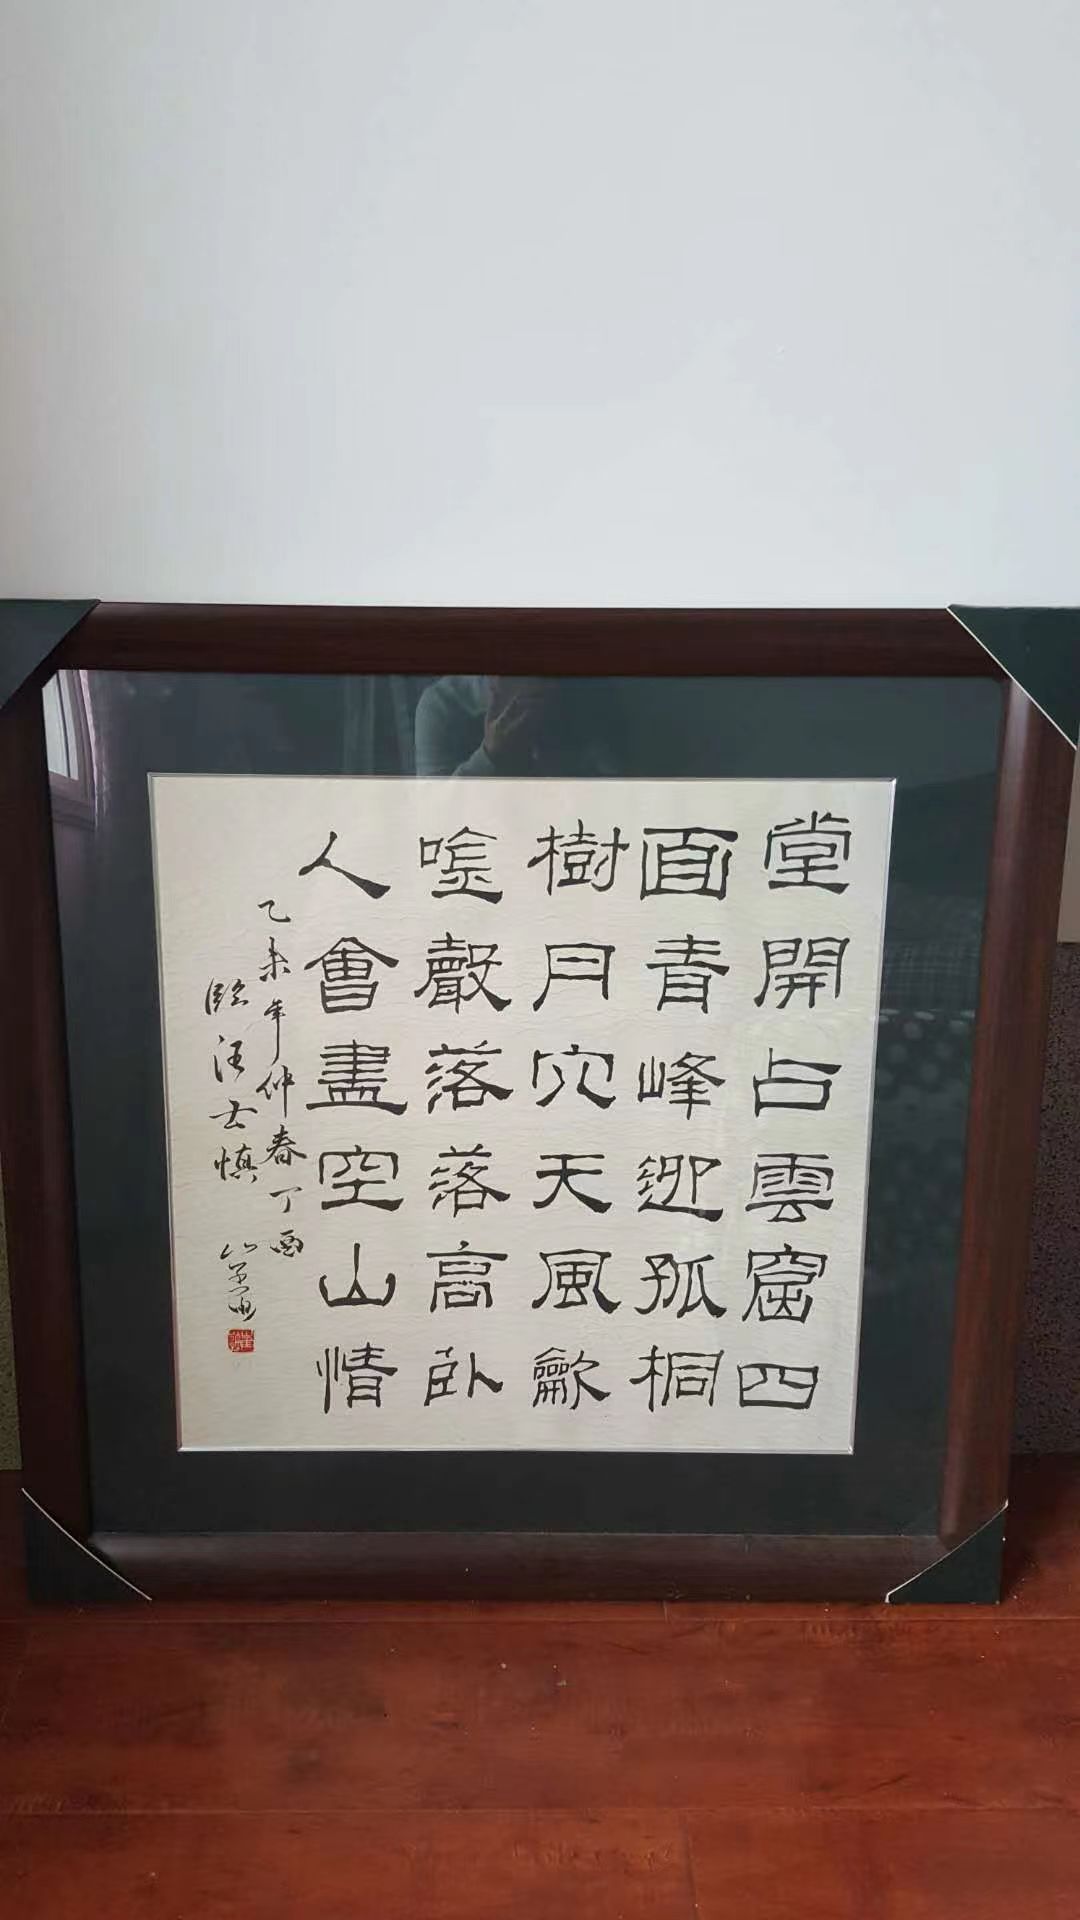 堂開占雲窟四
面青峰迎孤桐
樹月穴天風龡
唫聲落落高臥
人會盡空山情
乙未年仲春丁酉
臨汪士慎